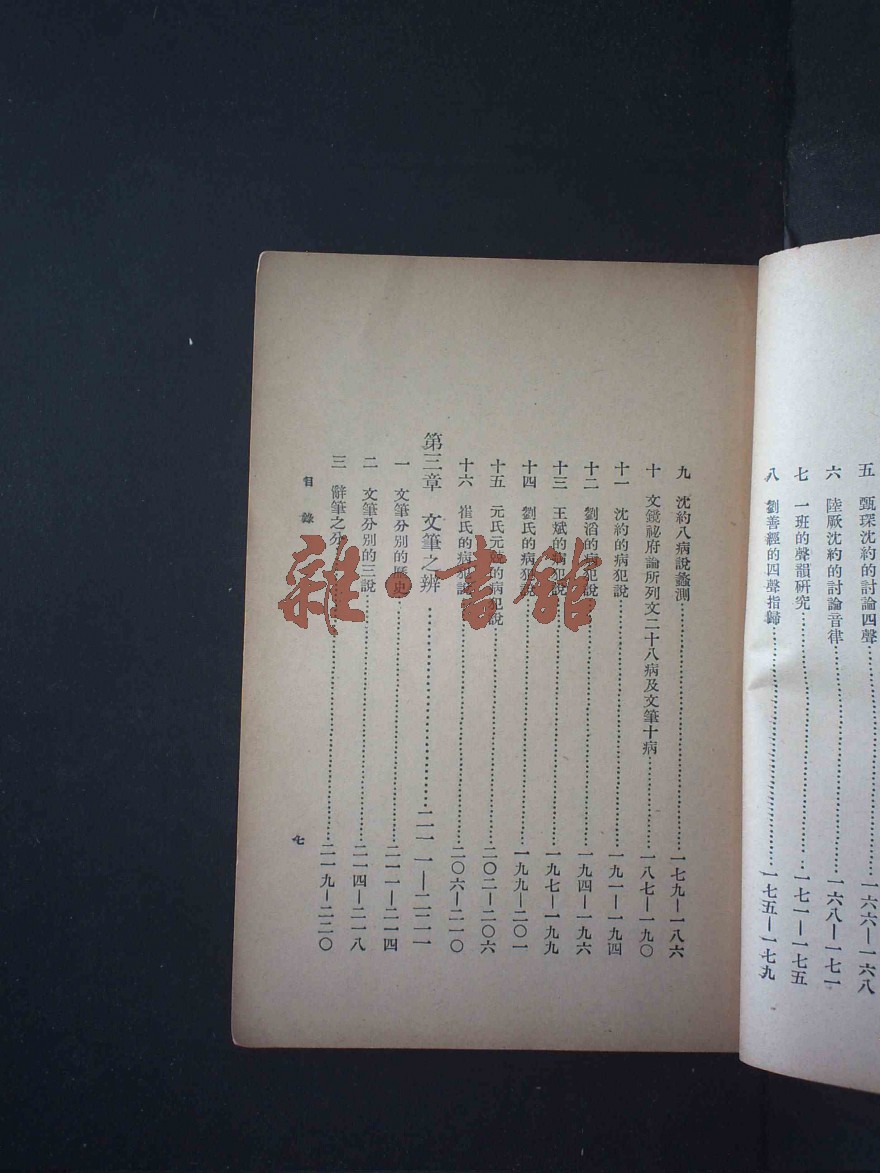 五　甄琛沈約的討論四聲……一六六—一六八
六　陸厥沈約的討論音律……一六八—一七一
七　一班的聲韻研究……一七一—一七五
八　劉善經的四聲指歸……一七五—一七九
九　沈約八病說蠡測……一七九—一八六
十　文鏡祕府論所列文二十八病及文筆十病……一八七—一九〇
十一　沈約的病犯說……一九一—一九四
十二　劉滔的病犯說……一九四—一九六
十三　王斌的病犯說……一九七—一九九
十四　劉氏的病犯說……一九九—二〇一
十五　元氏元兢的病犯說……二〇二—二〇六
十六　崔氏的病犯說……二〇六—二一〇
第三章　文筆之辨……二一一—二二一
一　文筆分別的歷史……二一一—二一四
二　文筆分別的三說……二一四—二一八
三　辭筆之分……二一九—二二〇
目錄
七
雜·書館